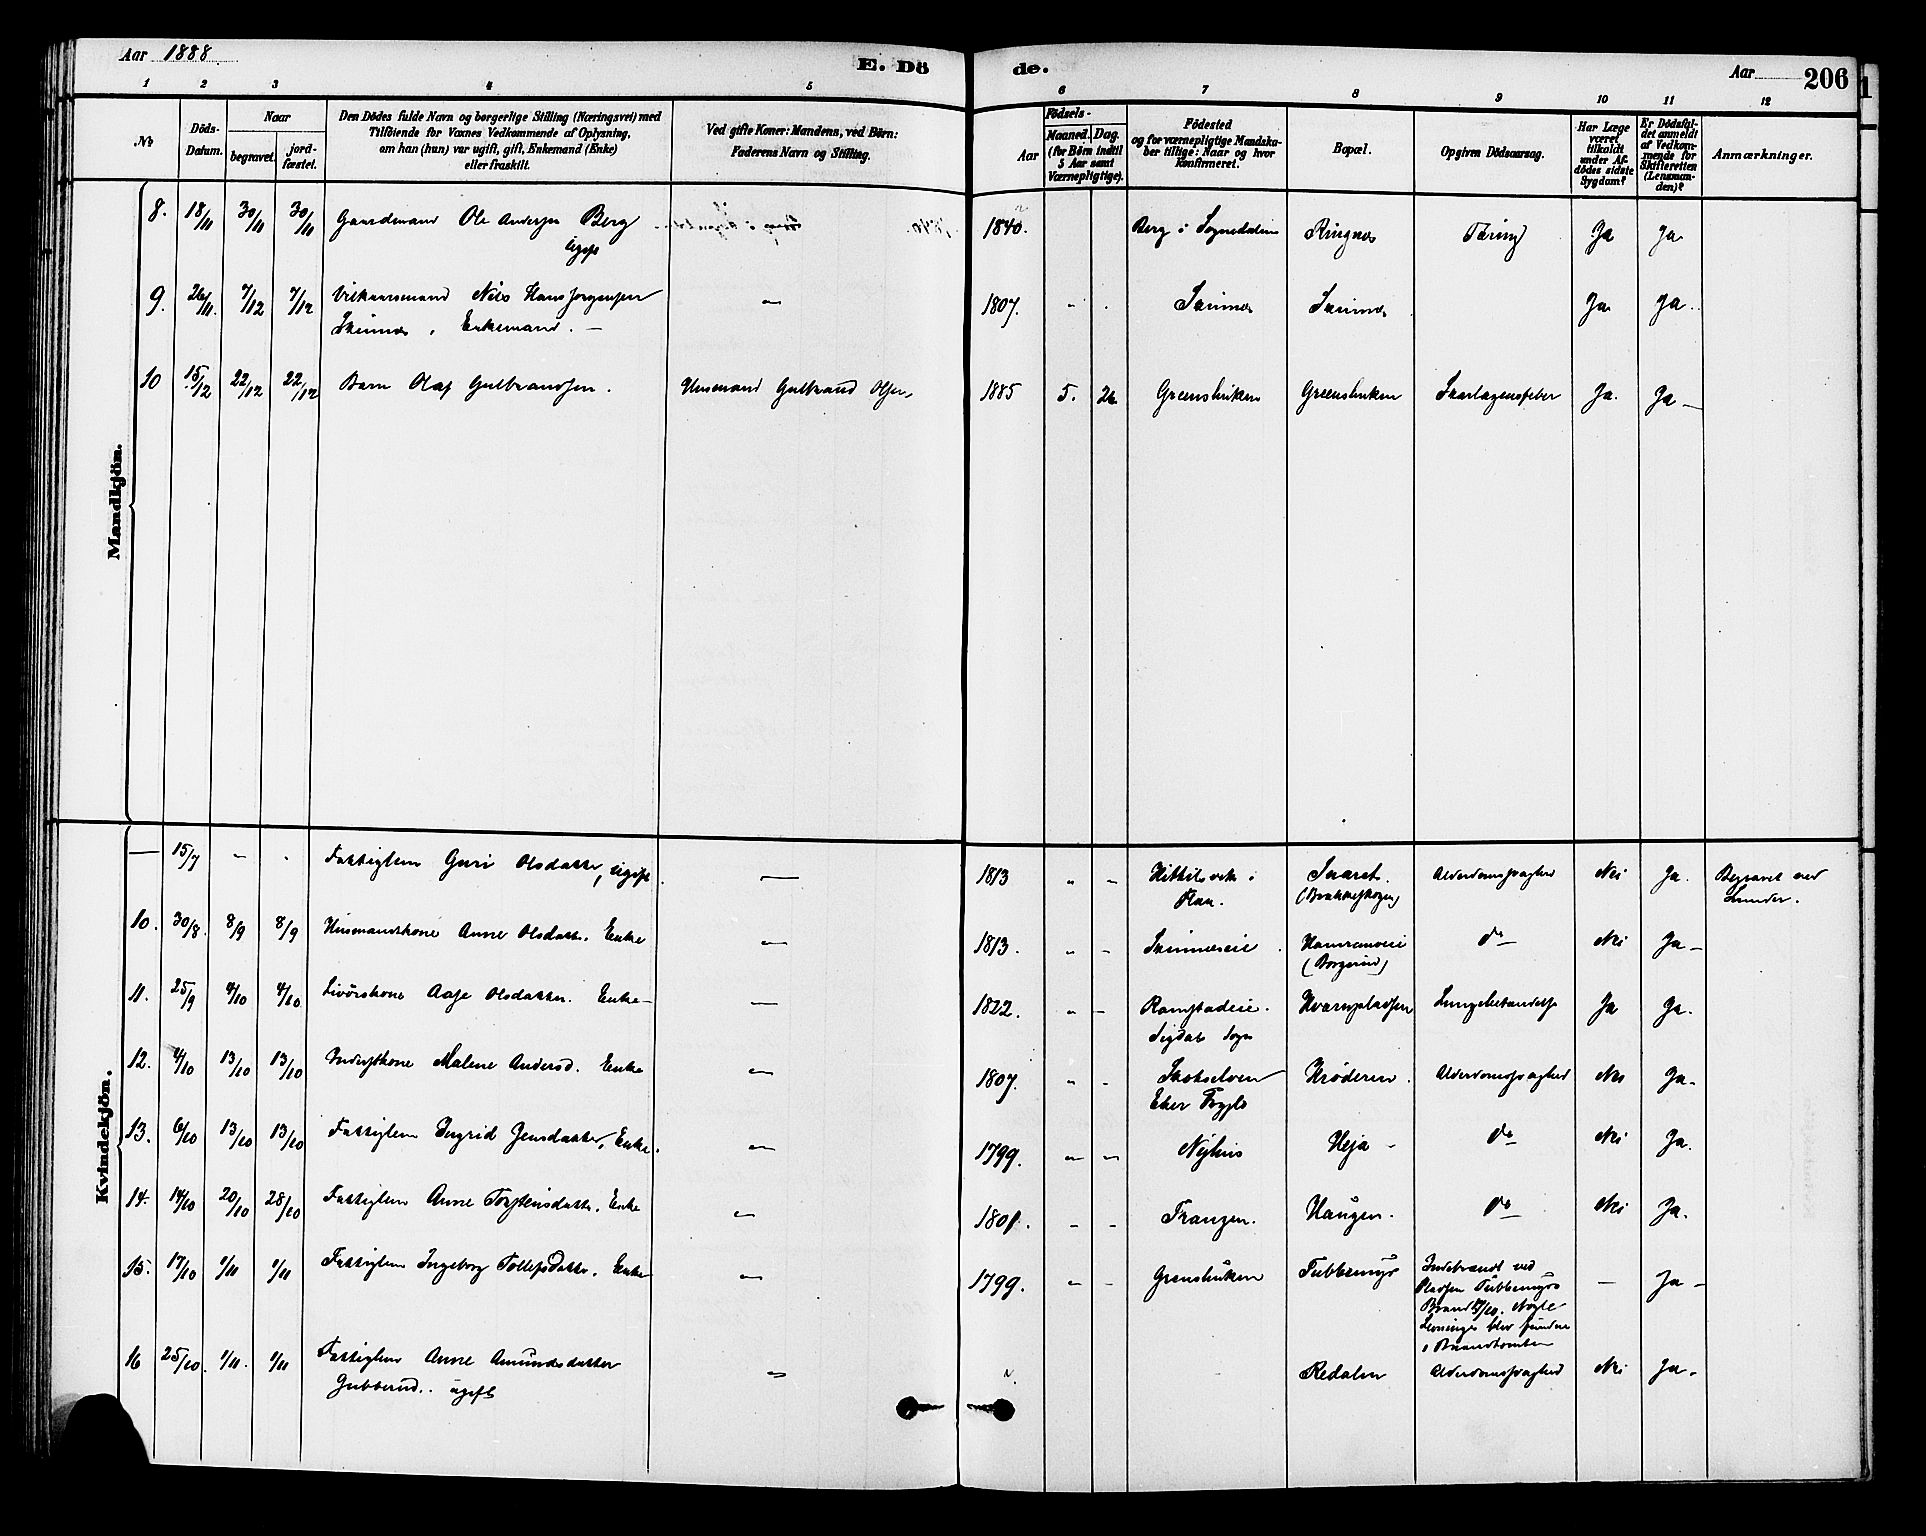 Aar 1888.
E. Dö
de.
Aar
206
1 2 3 4 5 6 7 8 9 10 11 12
No
Döds-
Datum.
Naar
begravet.
jord-
fæstet.
Den Dödes fulde Navn og borgerlige Stilling (Næringsvei) med
Tilföiende for Voxnes Vedkommende af Oplysning,
om han (hun) var ugift, gift, Enkemand (Enke)
eller fraskilt.
Ved gifte Koner: Mandens, ved Börn:
Faderens Navn og Stilling.
Aar
Födsels-
Maaned. Dag.
(for Börn indtil
5 Aar samt
Værnepligtige).
Födested
og for værnepligtige Mandska-
ber tillige: Naar og hvor
konfirmeret.
Bopæl.
Opgiven Dödsaarsag.
Har Læge
været
tilkaldt
under Af-
dödes sidste
Sygdom?
Er Dödsfal-
det anmeldt
af Vedkom-
mende for
Skifteretten
(Lensman-
den)?
Anmærkninger.
Mandkjön.
8. 18/11 30/11 30/11 Gaardmand Ole Andersen Berg 1840. Berg i Sognedalen Ringnes Tæring Ja Ja
ugift
9. 26/11. 7/12 7/12 Vilkaarsmand Nils Hans Jørgensen 1807. Skinnes Skinnes Ja Ja
Skinnes, Enkemand. —
10 15/12 22/12 22/12 Barn Olaf Gulbrandsen. Husmand Gulbrand Olsen 1885 5. 26 Grønsluken Grønsluken Skarlagensfeber Ja. Ja —
Kvindekjön.
— 15/7 - - Fattiglem Guri Olsdatter, ugift. — 1813 Kittilsvik i Snaret. Alderdomssvaghed Nei Ja. Begravet ved
Flaa. Lunder.
10. 30/8. 8/9 8/9 Husmandskone Anne Olsdatt. Enke — 1813. Skinneseie do Nei Ja —
11. 25/9 4/10 4/10 Livørskone Aase Olsdatter. Enke — 1822. Ramstadeie. Kværnpladsen Lungebetændelse Ja Ja.
Sigdals Sogn
12. 4/10 13/10 13/10 Inderstkone Malene Andersd. Enke — 1807. Skotselven Krøderen. Alderdomssvaghed Nei Ja.
Eker
13. 6/10 13/10 13/10 Fattiglem Ingrid Jensdatter, Enke. — 1799. Nyhus Heja do Nei Ja.
14. 14/10 20/10 28/10 Fattiglem Anne Torstensdatt. Enke — 1801. Trangen. Haugen. do Nei Ja.
15. 17/10 1/11 1/11 Fattiglem Ingeborg Tollefsdatter. Enke — 1799. Grønsluken Tubbemyr Indebrændt ved
Pladsen Tubbemyrs — Ja —
Brand 17/10. Nogle
Levninger blev fundne
i Brandtomten
16 25/10. 1/11. 1/11 Fattiglem Anne Amundsdatter — Redalen Alderdomssvaghed Nei Ja.
Gubberud. ugift